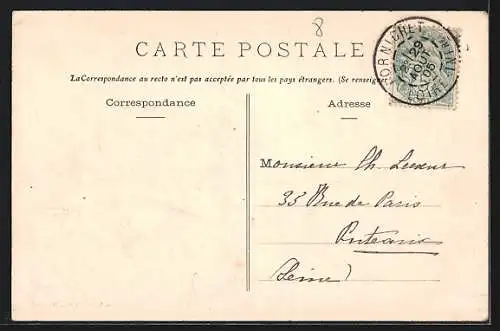 8
CARTE POSTALE
La Correspondance au recto n'est pas acceptée par tous les pays étrangers. (Se renseigner
PORNICHET
LOIRE INF
29
AOUT
05
Correspondance
Adresse
Monsieur Ch. Lesueur
33 Rue de Paris
Puteaux
(Seine)